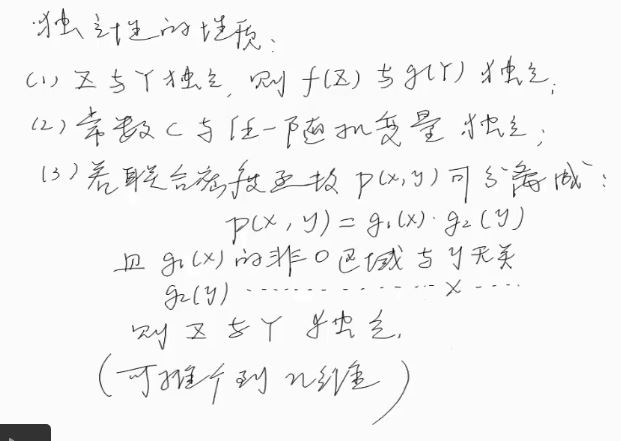 独立性的性质:
(1) X与Y独立, 则 f(X) 与 g(Y) 独立;
(2) 常数C与任一随机变量独立;
(3) 若联合密度函数 p(x,y) 可分离成:
p(x,y) = g₁(x)·g₂(y)
且 g₁(x) 的非0区域与y无关
g₂(y) ------------ x ----
则 X与Y独立.
(可推个到n维)